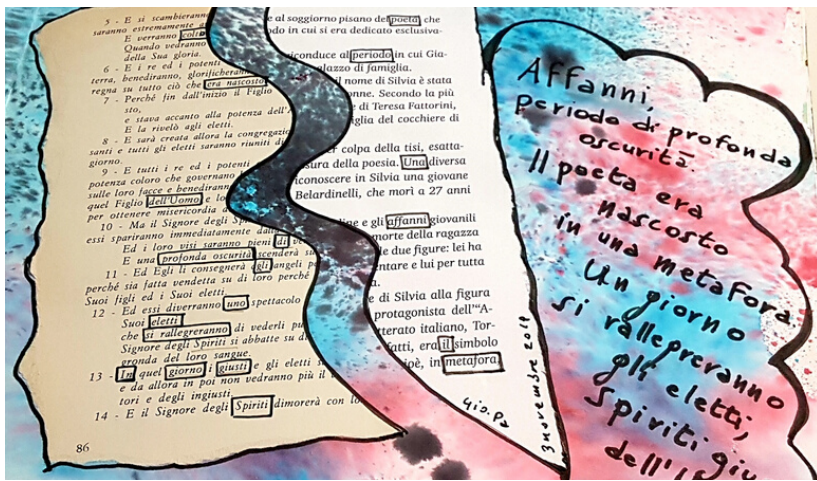 5 - E si scambieranno
saranno estremamente
E verranno colti
Quando vedranno
della Sua gloria.
6 - E i re ed i potenti
terra, benediranno, glorificheranno
regna su tutto ciò che era nascosto
7 - Perché fin dall'inizio il Figlio
sto,
e stava accanto alla potenza dell'
E la rivelò agli eletti.
8 - E sarà creata allora la congregazio
santi e tutti gli eletti saranno riuniti di
giorno.
9 - E tutti i re ed i potenti
potenza coloro che governano
sulle loro facce e benediranno
quel Figlio dell'Uomo e lo
per ottenere misericordia d
10 - Ma il Signore degli Sp
essi spariranno immediatamente dall
Ed i loro visi saranno pieni di ve
E una profonda oscurità scenderà su
11 - Ed Egli li consegnerà agli angeli p
perché sia fatta vendetta su di loro perché
Suoi figli ed i Suoi eletti.
12 - Ed essi diverranno uno spettacolo
Suoi eletti
che si rallegreranno di vederli pu
Signore degli Spiriti si abbatte su di
gronda del loro sangue.
13 - In quel giorno i giusti e gli eletti s
e da allora in poi non vedranno più il
tori e degli ingiusti.
14 - E il Signore degli Spiriti dimorerà con lo
86
e al soggiorno pisano del poeta, che
odo in cui si era dedicato esclusiva-
riconduce al periodo in cui Gia-
palazzo di famiglia.
il nome di Silvia è stata
onne. Secondo la più
e di Teresa Fattorini,
figlia del cocchiere di
per colpa della tisi, esatta-
sura della poesia. Una diversa
riconoscere in Silvia una giovane
Belardinelli, che morì a 27 anni
ine e gli affanni giovanili
morte della ragazza
le due figure: lei ha
entare e lui per tutta
a.
e di Silvia alla figura
protagonista dell'"A-
tterato italiano, Tor-
fatti, era il simbolo
cioè, in metafora,
Gio.Pa
3 novembre 2019
Affanni,
periodo di profonda
oscurità.
Il poeta era
nascosto
in una metafora.
Un giorno
si rallegreranno
gli eletti,
Spiriti giu
dell'U